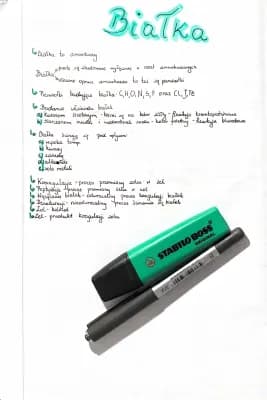 Białka
Białka to aminokwasy
proste są zbudowane wyłącznie z reszt aminokwasowych
Białka
złożone oprócz aminokwasów to też są pierwiastki
Pierwiastki budujące białka: C,H,O,N,S,P oraz
Badanie obecności białek
a) Kwasem azotowym - barwi się na kolor żółty - Reakcja ksantoproteinowa
Białka ścinają się pod wpływem:
a) wysoka temp.
b) kwasy
c) zasady
d) alkohole
e) sole metali
Koagulacja - proces przemiany zolu w żel
Peptyzacja - proces przemiany żelu w zol
Wysalanie białek - odwracalny proces koagulacji białek
Denaturacja - nieodwracalny proces ścinania się białek
Zol - koloid
Żel - produkt koagulacji zolu
STABILO BOSS
ORIGINAL